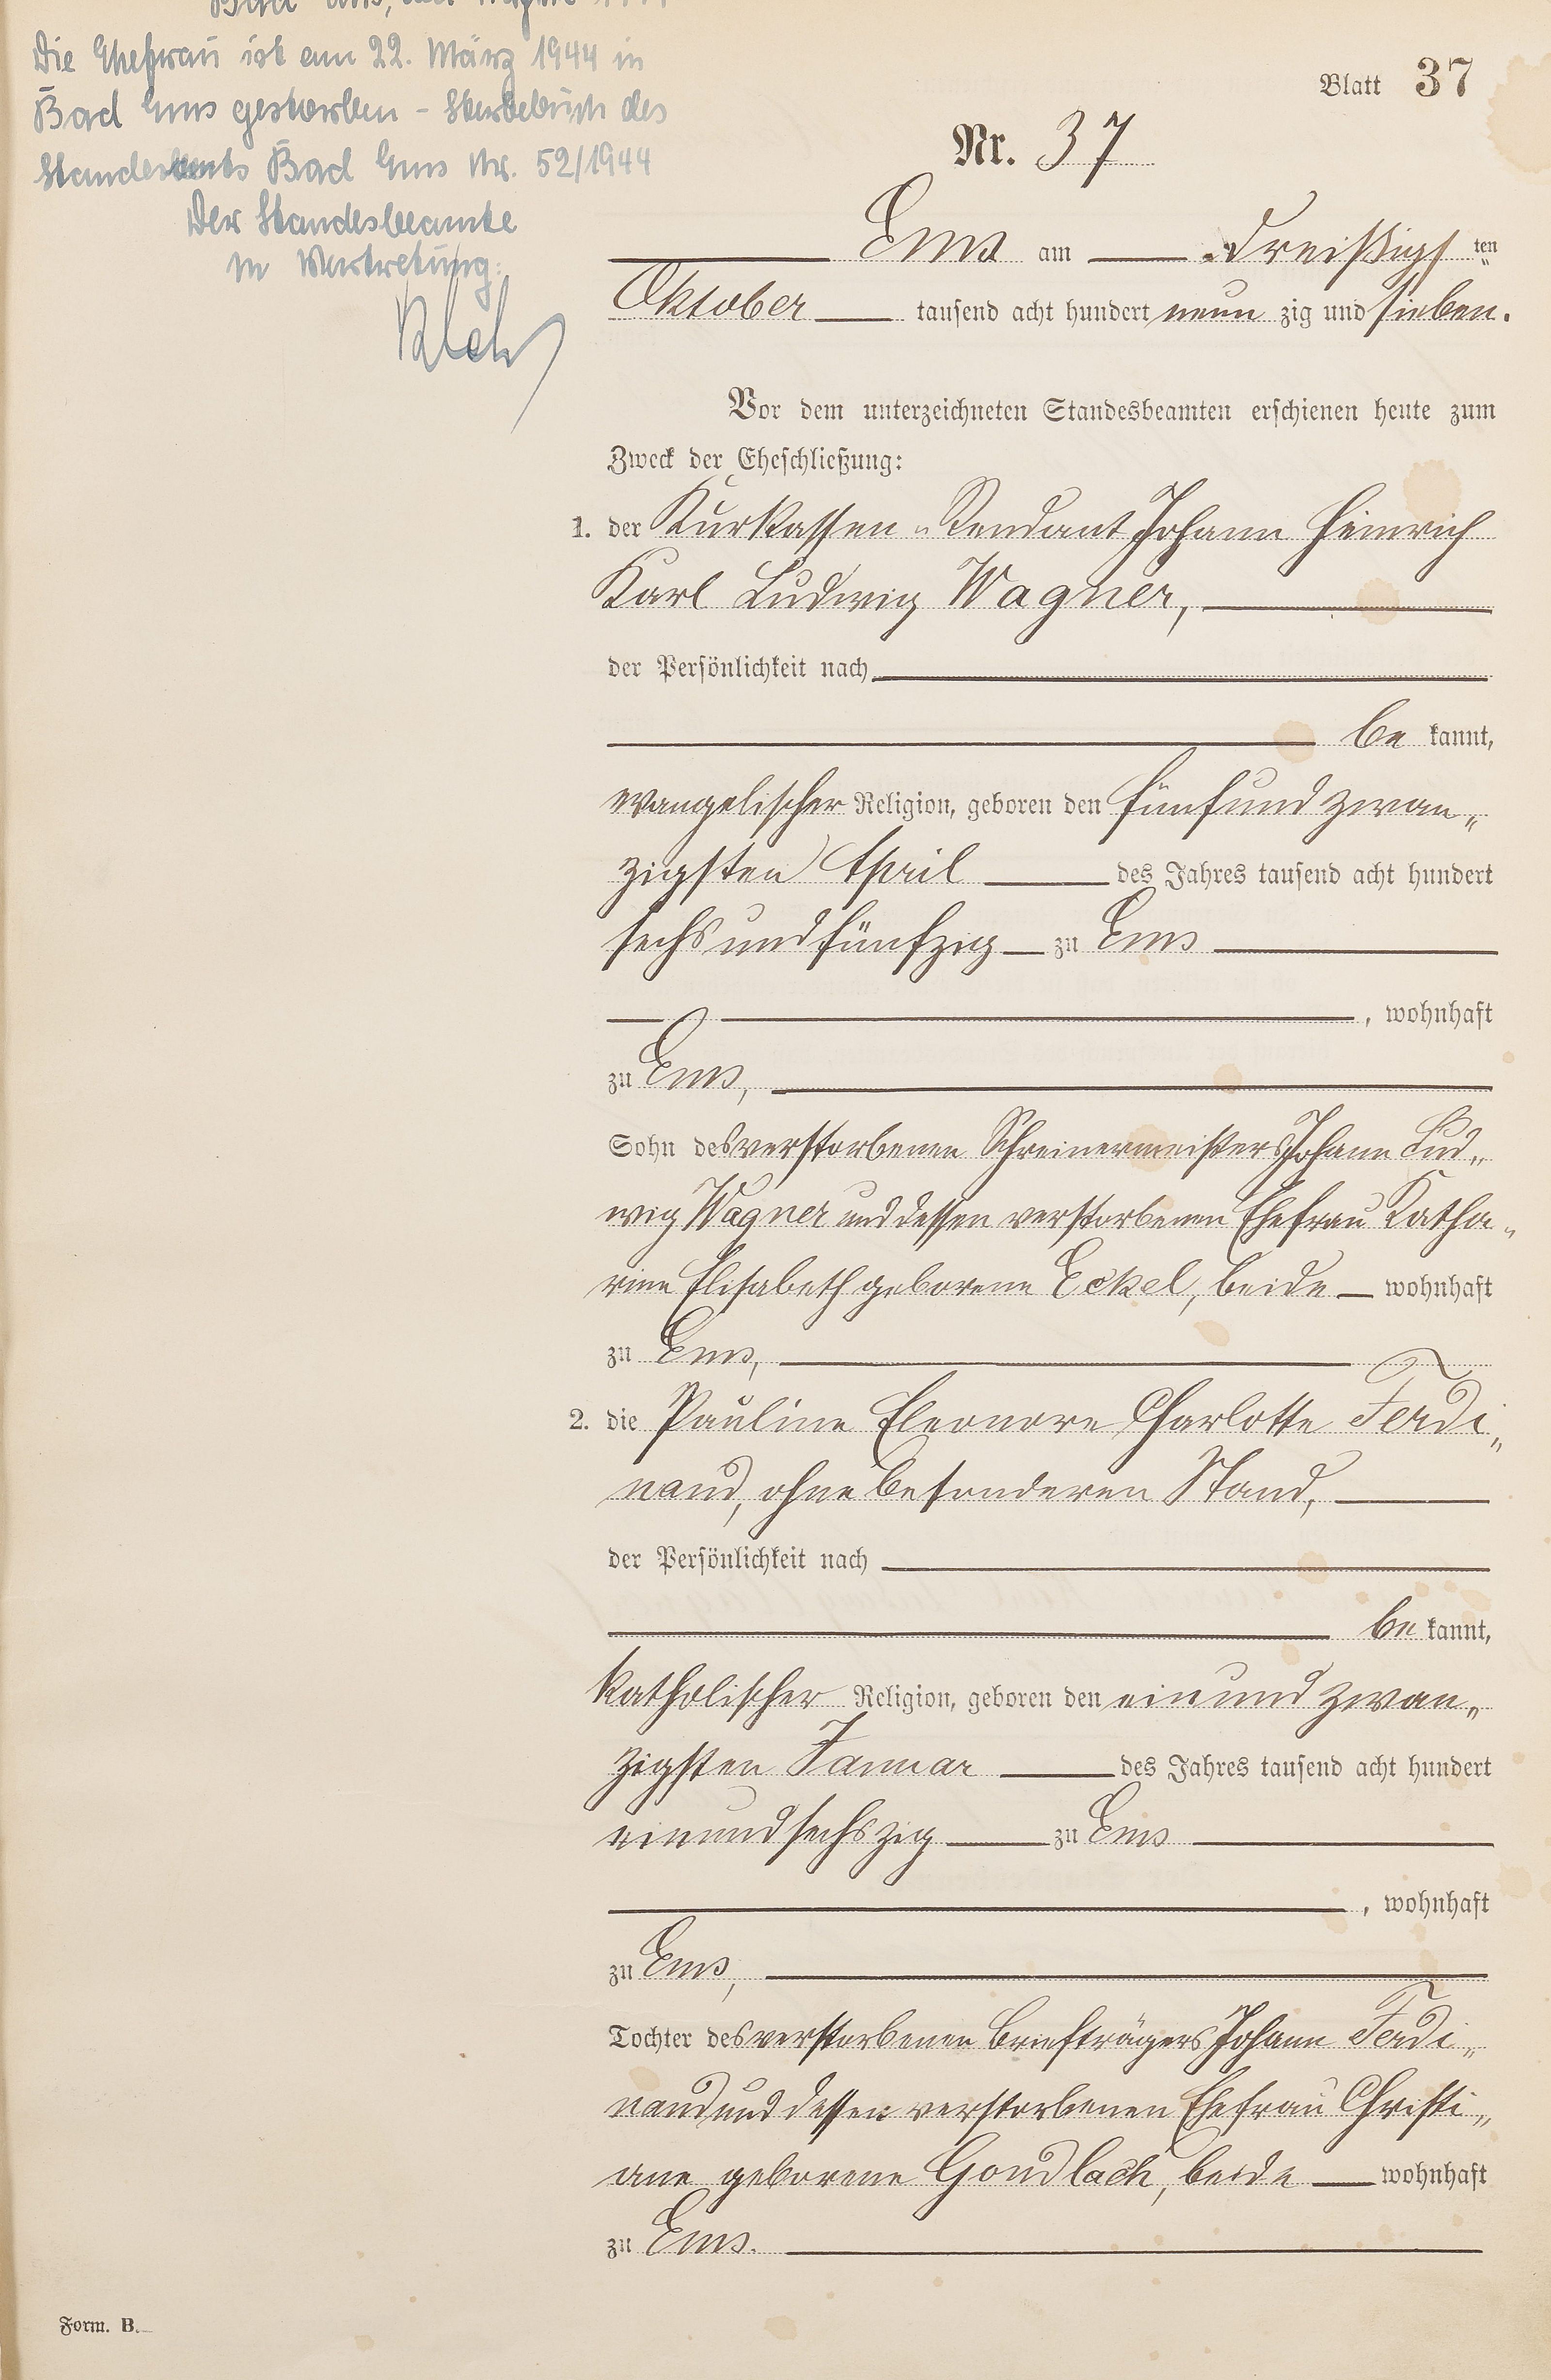 Die Ehefrau ist am 22. März 1944 in
Bad Ems gestorben - Sterbebuch des
Standesamts Bad Ems Nr. 52/1944
Der Standesbeamte
In Vertretung:
Blatt 37
Nr. 37
Ems am Dreißigsten
Oktober tausend acht hundert neunzig und sieben.
Vor dem unterzeichneten Standesbeamten erschienen heute zum
Zweck der Eheschließung:
1. der Kurkassen-Rendant Johann Heinrich
Karl Ludwig Wagner,
der Persönlichkeit nach
bekannt,
evangelischer Religion, geboren den fünfundzwan„
zigsten April des Jahres tausend acht hundert
sechsundfünfzig zu Ems
, wohnhaft
zu Ems,
Sohn des verstorbenen Schreinermeisters Johann Lud„
wig Wagner und dessen verstorbenen Ehefrau Katha„
rine Elisabeth geborene Eckel, beide wohnhaft
zu Ems,
2. die Pauline Eleonore Charlotte Ferdi„
nand, ohne besonderen Stand,
der Persönlichkeit nach
bekannt,
katholischer Religion, geboren den einundzwan„
zigsten Januar des Jahres tausend acht hundert
einundsechszig zu Ems
, wohnhaft
zu Ems,
Tochter des verstorbenen Briefträgers Johann Ferdi„
nand und dessen verstorbenen Ehefrau Christi„
ane geborene Gondlach, beide wohnhaft
zu Ems.
Form. B.